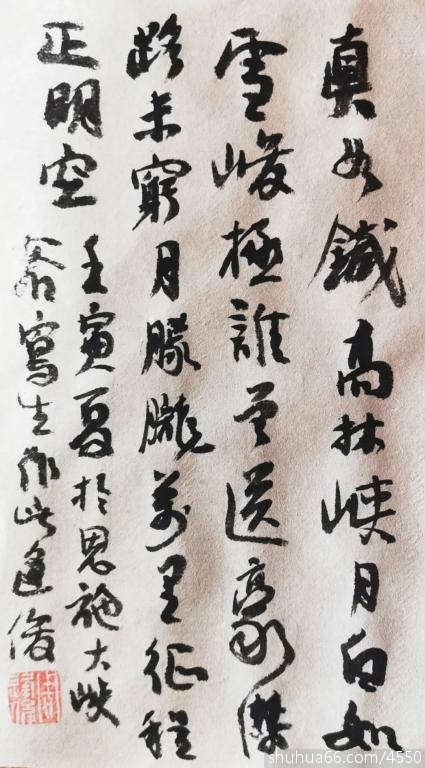 真如鐵高林峡月白如
雪峻極誰送豪傑
路未窮月朦朧萬里征程
正明空 壬寅夏於恩施大峡
谷寫生作此逢俊
shuhua66.com/4550